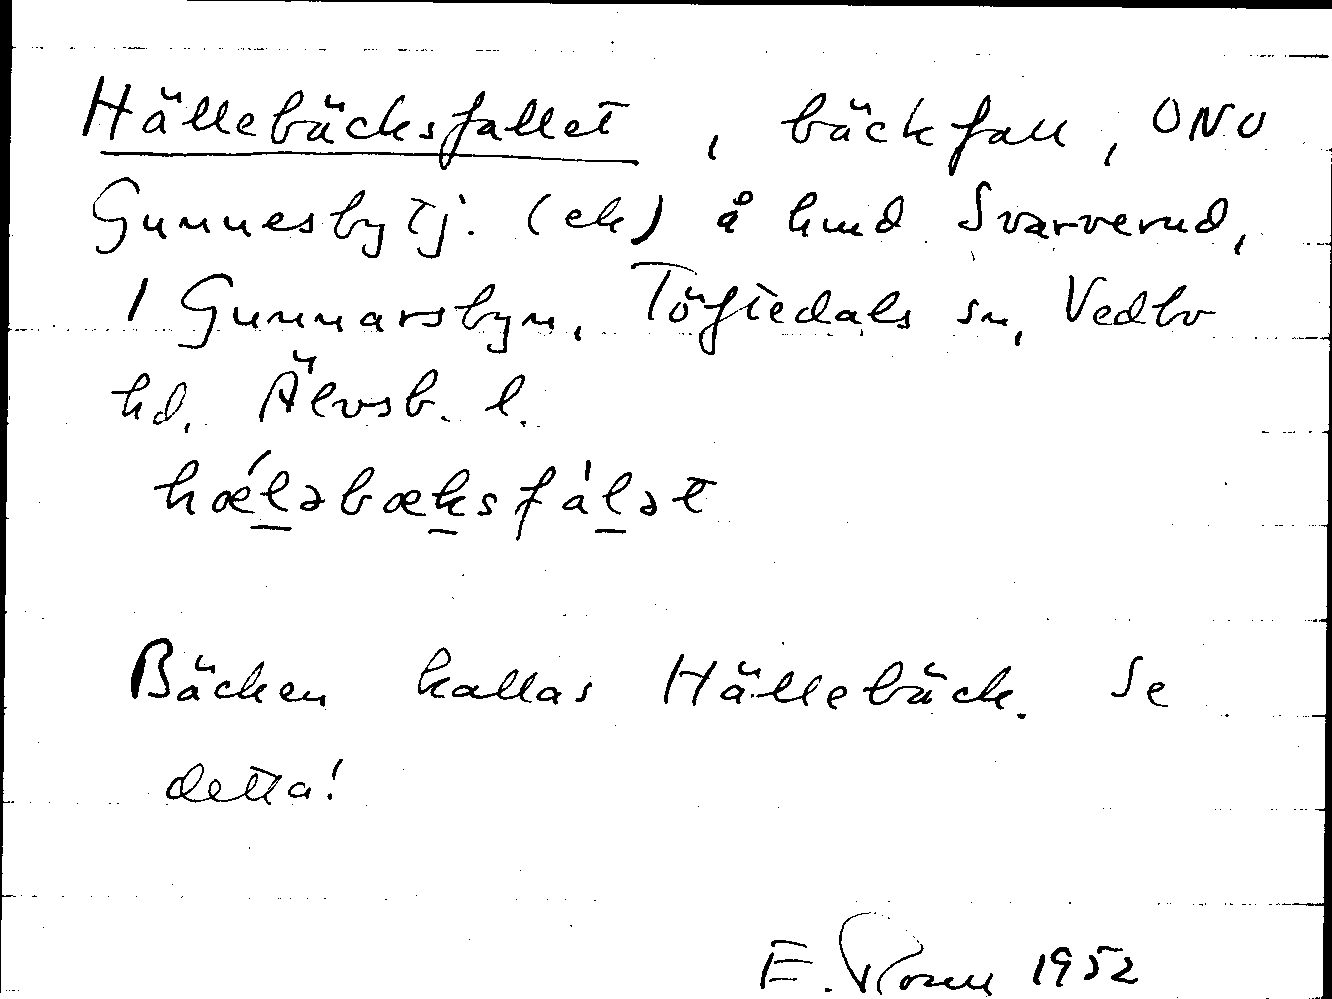 Hällebäcksfallet, bäckfall, ONO
Gunnesbytj. (ek) å hmd Svarverud,
1 Gunnarsbyn, Töftedals sn, Vedbo
hd, Älvsb. l.
hǽləbæksfàlət
Bäcken kallas Hällebäck. Se
detta!
E. Rosen 1952